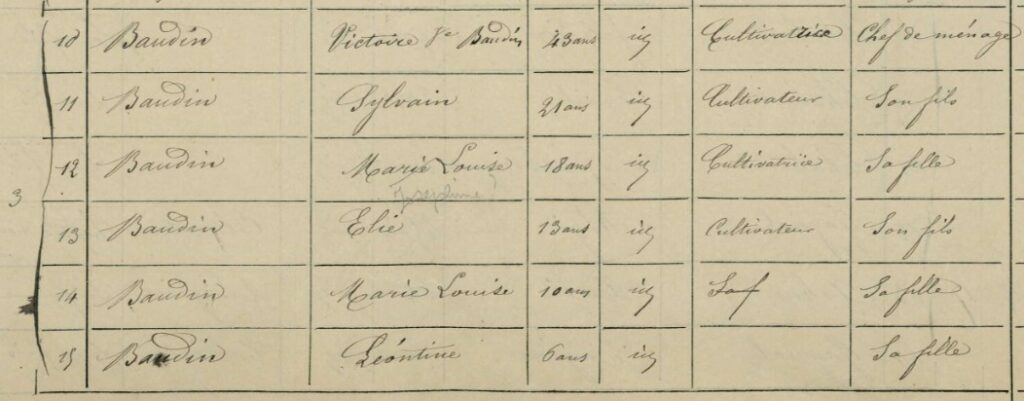 10 Baudin Victoire Ve Baudin 43 ans id Cultivatrice Chef de ménage
11 Baudin Sylvain 21 ans id Cultivateur Son fils
12 Baudin Marie Louise 18 ans id Cultivatrice Sa fille
Joséphine
3
13 Baudin Elie 13 ans id Cultivateur Son fils
14 Baudin Marie Louise 10 ans id Sa fille
15 Baudin Léontine 6 ans id Sa fille